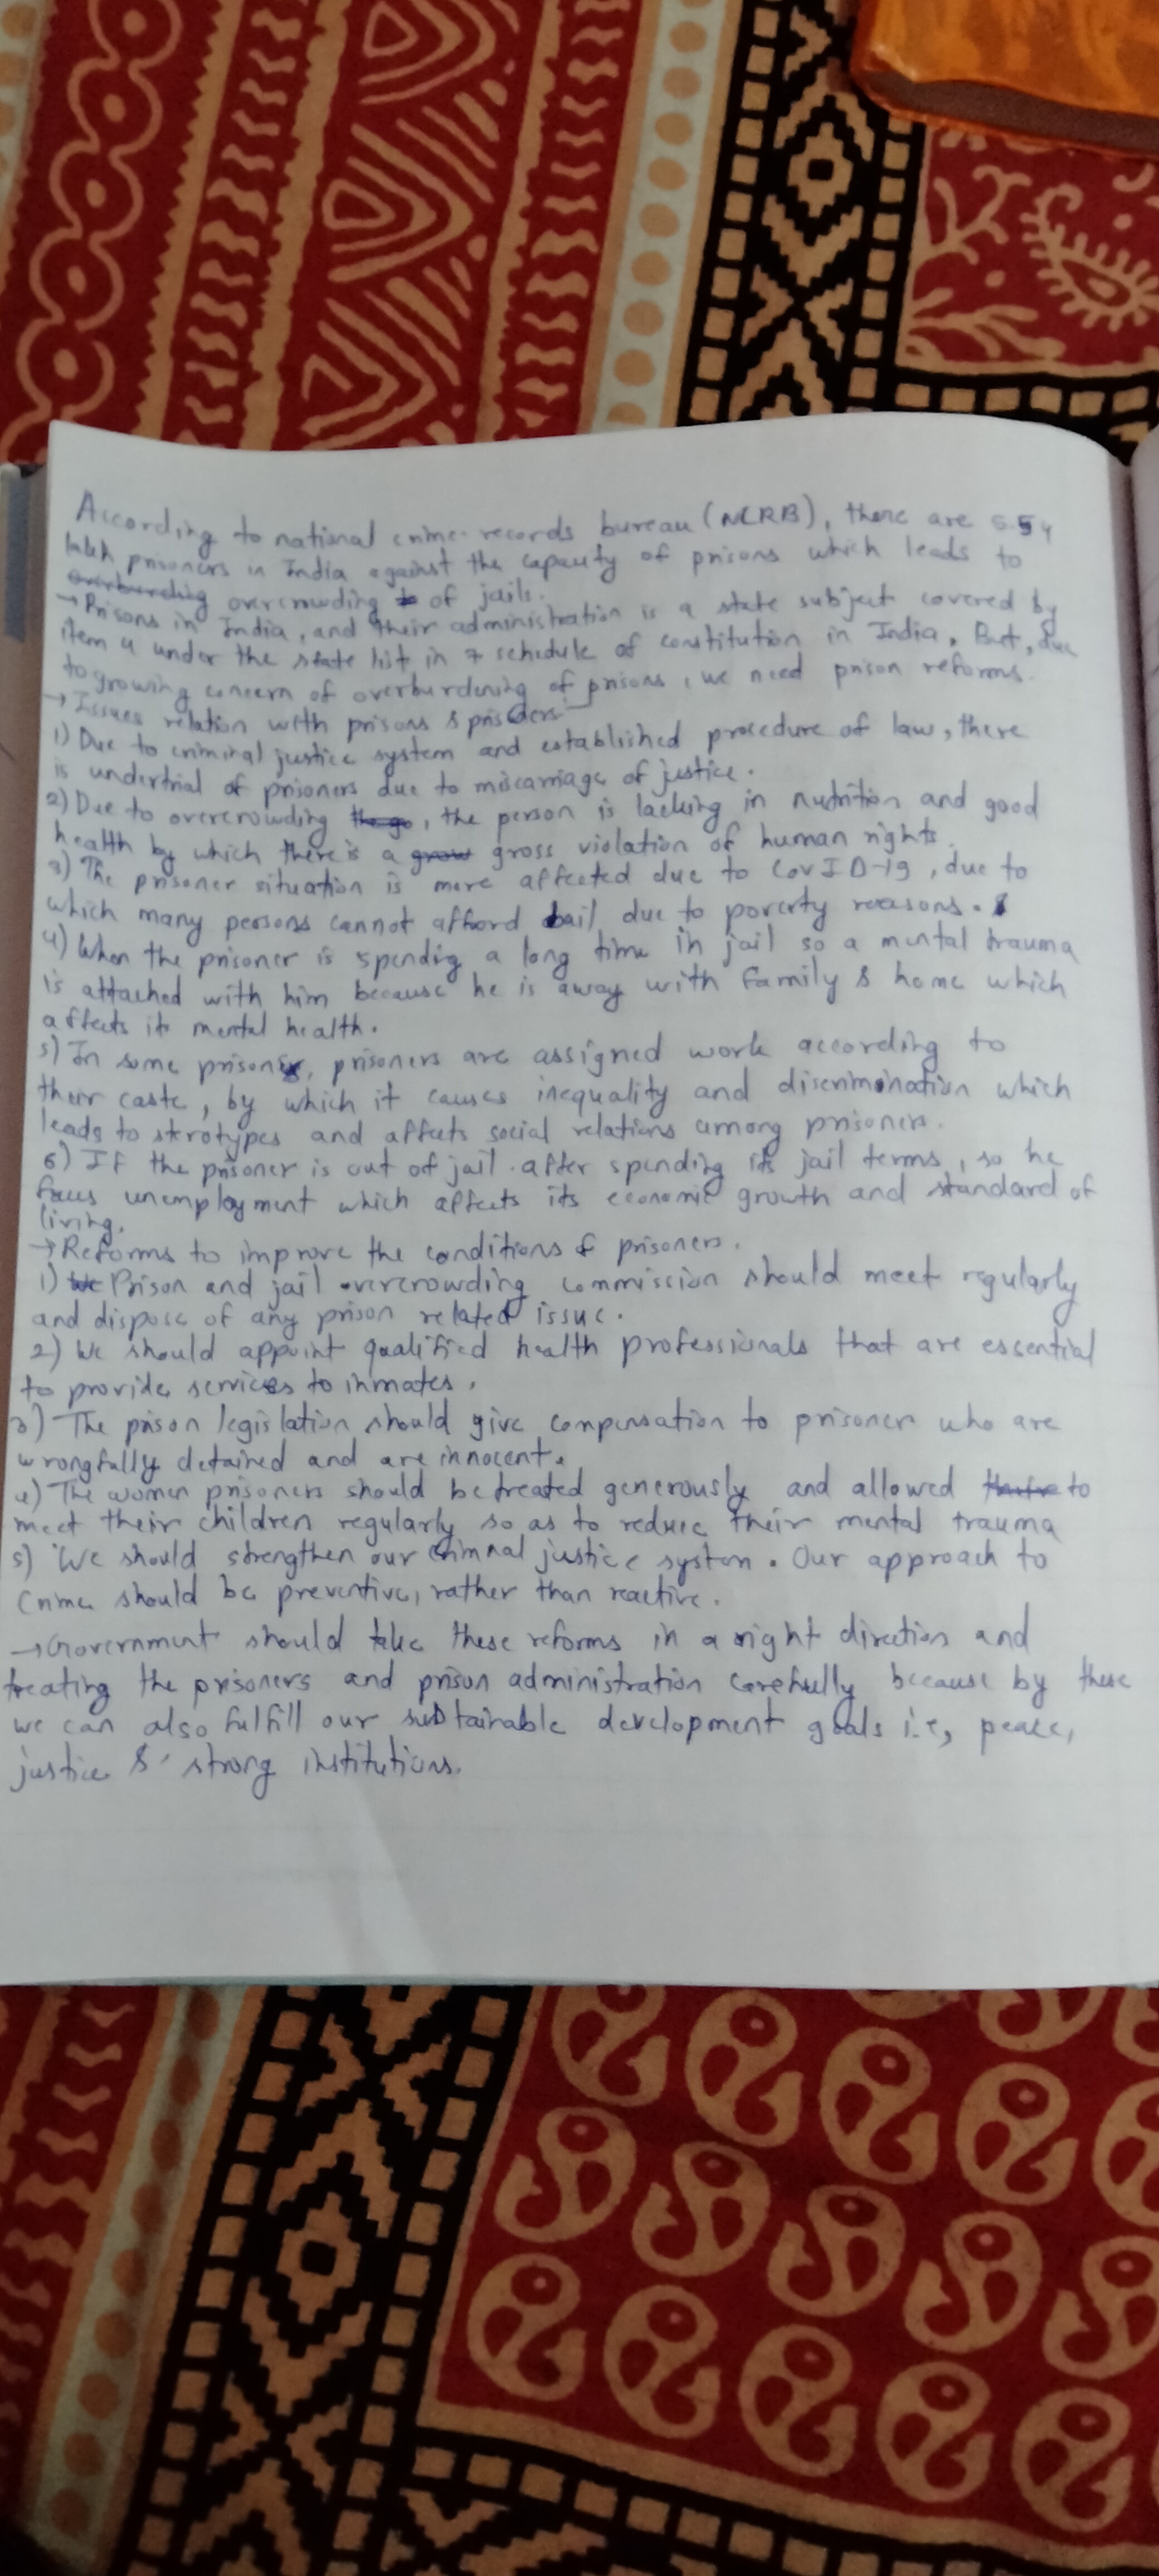 According to national crime records bureau (NCRB), there are 5.54
lakh prisoners in India against the capacity of prisons which leads to
overcrowding of jails.
→ Prisons in India, and their administration is a state subject covered by
item 4 under the state list in 7 schedule of constitution in India. But, due
to growing concern of overburdening of prisons, we need prison reforms.
→ Issues relation with prisons &
1) Due to criminal justice system and established procedure of law, there
is undertrial of prisoners due to miscarriage of justice.
2) Due to overcrowding, the person is lacking in nutrition and good
health by which there is a gross violation of human rights.
3) The prisoner situation is more affected due to COVID-19, due to
which many persons cannot afford bail due to poverty reasons.
4) When the prisoner is spendig a long time in jail so a mental trauma
is attached with him because he is away with family & home which
affects its mental health.
5) In some prisons, prisoners are assigned work according to
their caste, by which it causes inequality and discrimination which
leads to strotypes and affects social relations among prisoners.
6) If the prisoner is out of jail after spending its jail terms, so he
faces unemployment which affects its economic growth and standard of
living.
→ Reforms to improve the conditions of prisoners.
1) Prison and jail overcrowding commission should meet regularly
and dispose of any prison related issue.
2) We should appoint qualified health professionals that are essential
to provide services to inmates.
3) The prison legislation should give compensation to prisoner who are
wrongfully detained and are innocent.
4) The women prisoners should be treated generously and allowed to
meet their children regularly so as to reduce their mental trauma
5) We should strengthen our criminal justice system. Our approach to
crime should be preventive, rather than reactive.
→ Government should take these reforms in a right direction and
treating the prisoners and prison administration carefully because by these
we can also fulfill our sustainable development goals i.e, peace,
justice & strong institutions.